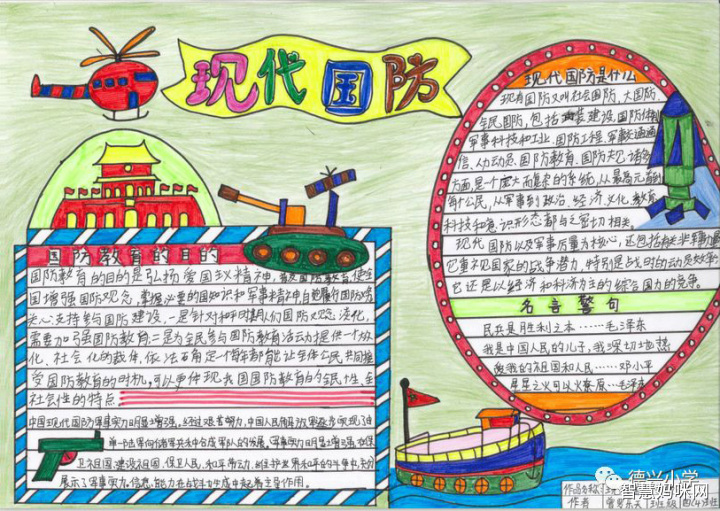 现代国防
现代国防是什么
现代国防又叫社会国防、大国防、
全民国防，包括武装建设、国防体制、
军事科技和工业、国防工程、军事交通通
信、人力动员、国防教育、国防法规诸多
方面，是一个庞大而复杂的系统，从最高元首到
每个公民，从军事到政治、经济、文化、教育、
科技和意识形态都与之密切相关。
现代国防以军事力量为核心，还包括有关非军事力量
它重视国家的战争潜力，特别是战时的动员效率
它还是以经济和科济为主的综合国力的竞争。
名言警句
民兵是胜利之本……毛泽东
我是中国人民的儿子，我深切地热
爱我的祖国和人民……邓小平
星星之火可以燎原…毛泽东
国防教育的目的
国防教育的目的是弘扬爱国主义精神，普及国防教育，使全
国增强国防观念，掌握必要的国知识和军事
关心支持参与国防建设，一是针对和平时期人们国防观念淡化，
需要加强国防教育；二是为全民参与国防教育活动提供一个大众
化、社会化的载体，依法
受国防教育的时机，可以更体现我国国防教育的全民性、全
社会性的特点
中国现代国防军事实力明显增强，经过艰苦努力，中国人民解放军逐步实现了由
单一陆军向诸军兵种合成军队的发展，军事实力明显增强，在保
卫祖国、建设祖国、保卫人民、和平劳动、维护世界和平的斗争中，充分
展示了军事实力。信息能力在战斗力生成中起着主导作用。
德兴小学
智慧妈咪网
作品名称
作者
班级